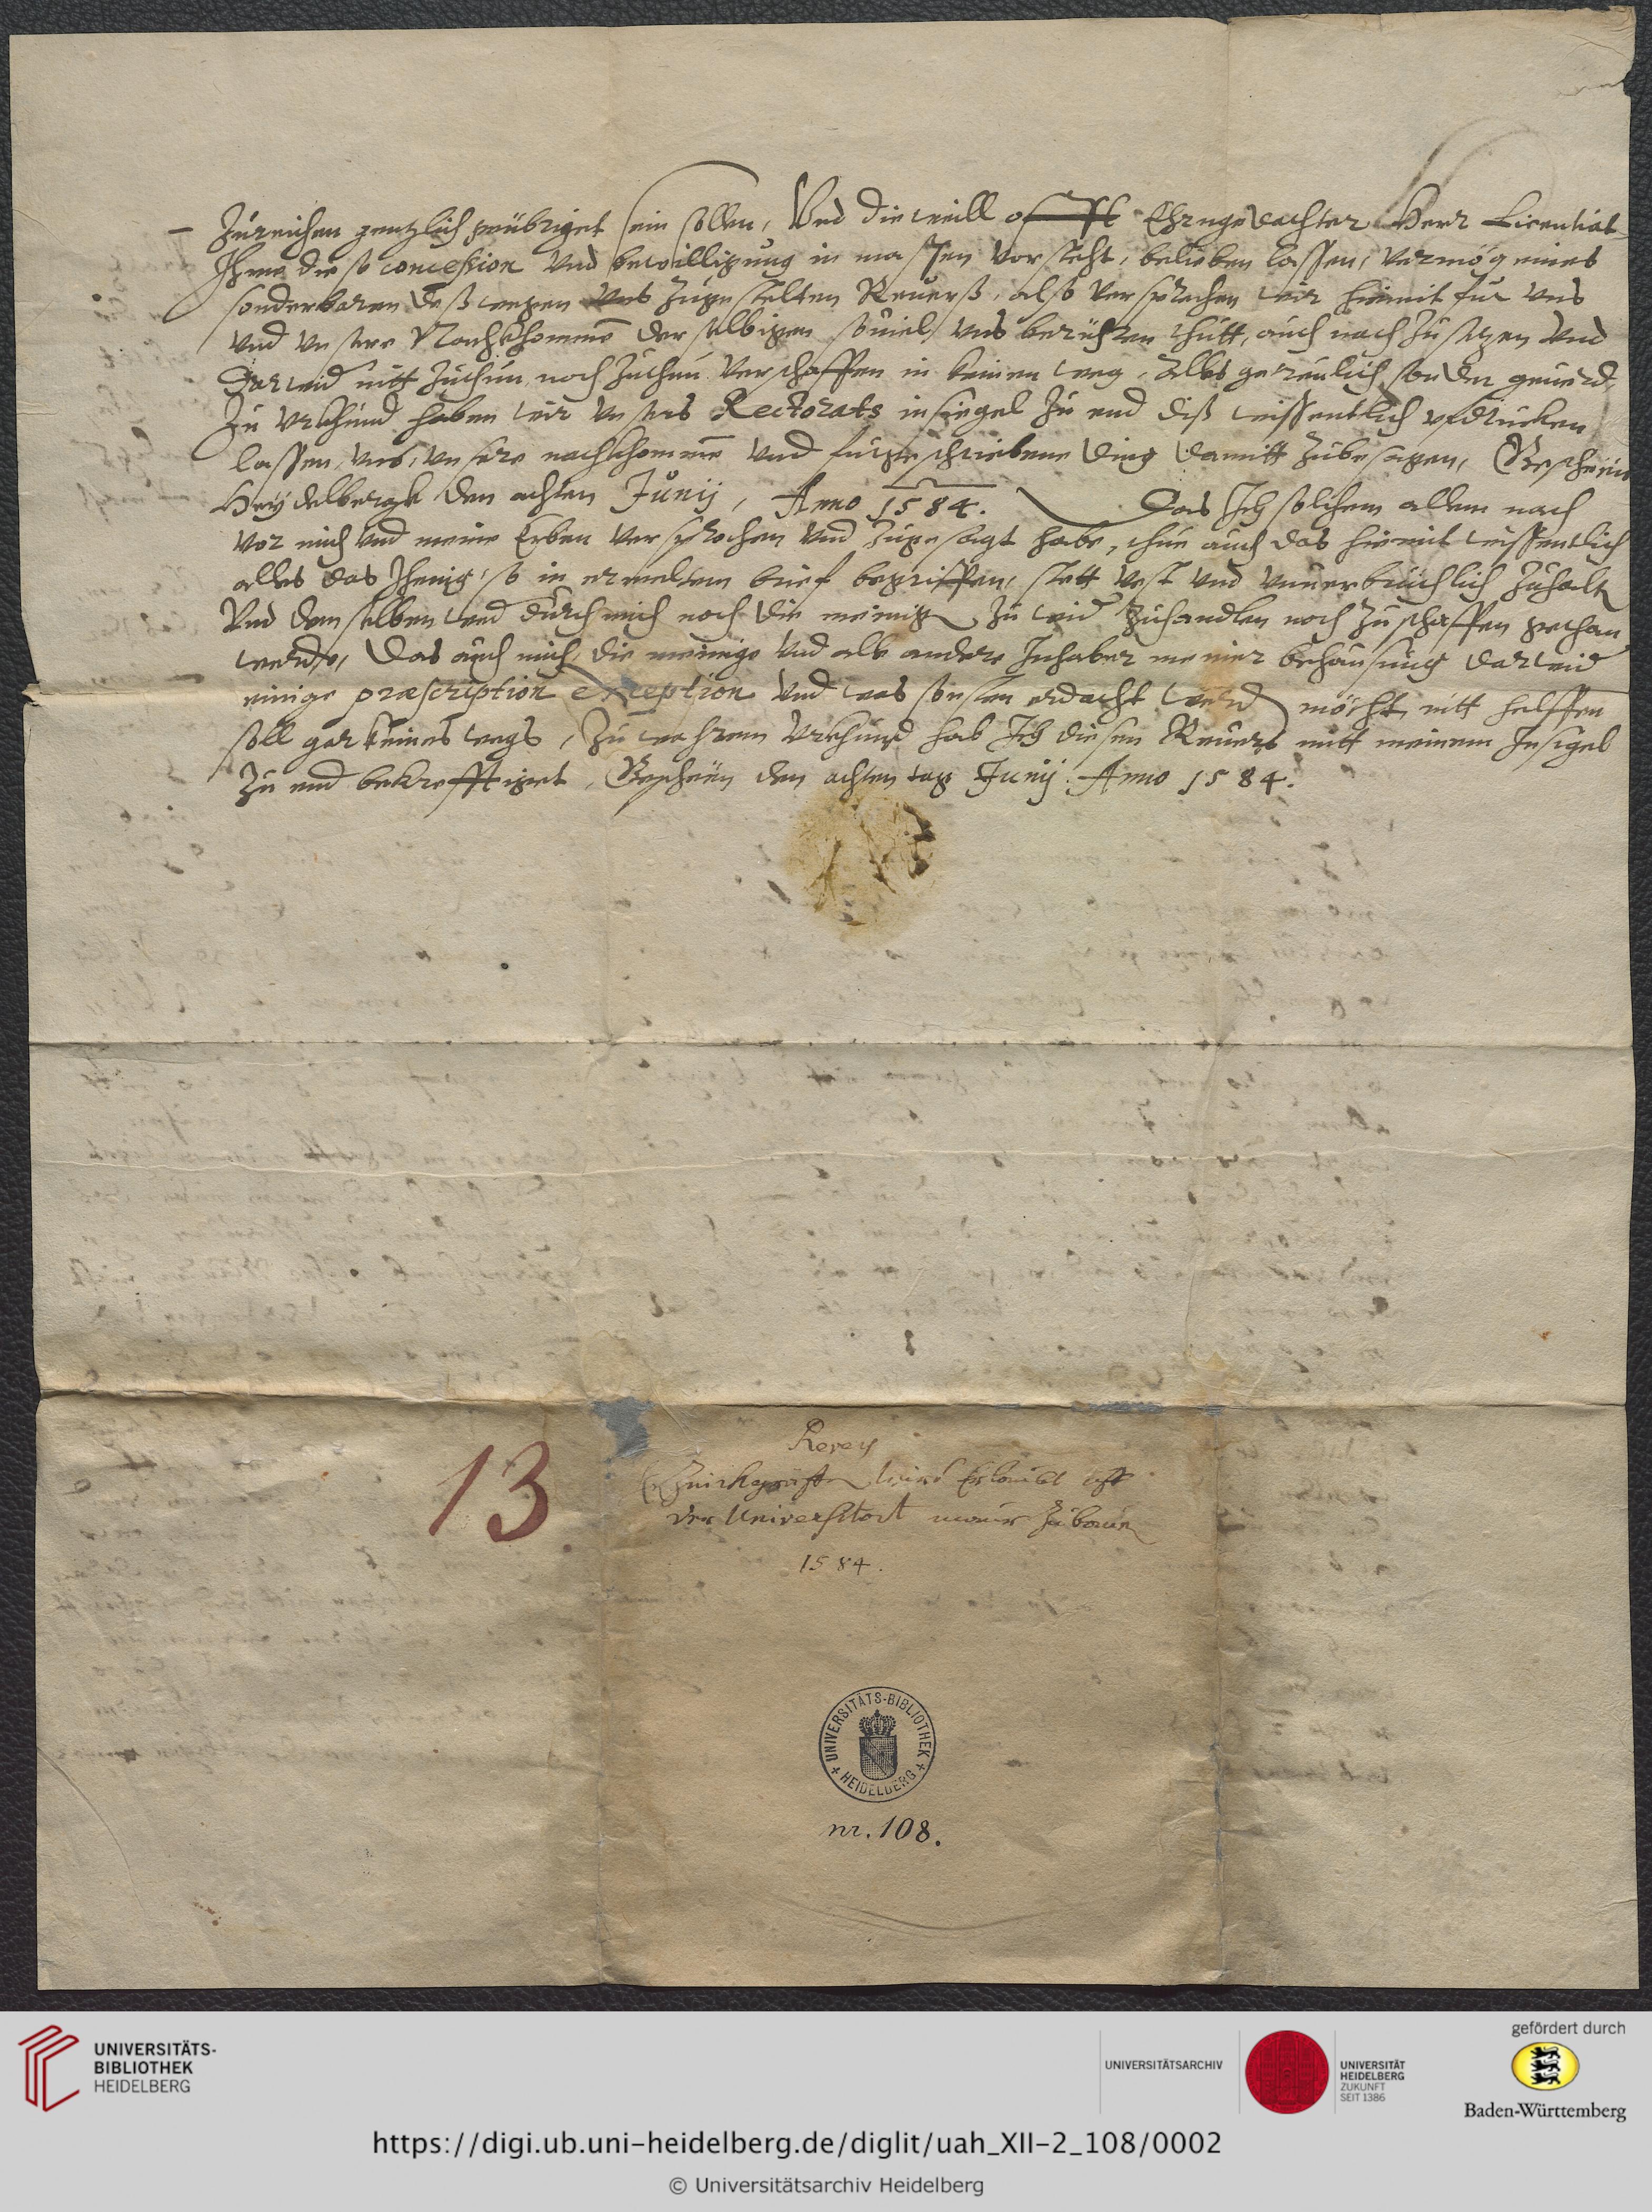 Zureichen gentzlich geübriget sein sollen, Und dieweill offt Ehrngedachter Herr Licentiat
Ihme diese concession und bewilligung in massen vorsteht, belieben lassen, vermög eines
sonderbaren deßwegen uns zugestelten Reuerß, also versprechen wir hiemit für uns
und unsere Nachkhommen derselbigen souiel uns berühren thutt, auch nach zu setzen und
darwid nitt zuthun noch zuthun verschaffen in keinen weg, Alles getreulich sonder geuerd,
Zu urkhund haben wir unsers Rectorats insiegel zu end diß wissentlich ufdrucken
lassen, uns, unsere nachkhommen und fürgeschriebene ding damitt zubesagen, Geschehen
Heydelbergk den achten Junij, Anno 1584. Das Ich solchem allem nach
vor mich und meine Erben versprochen und zugesagt habe, thue auch das hiemit wissentlich
alles das Jhenig, so in ermeltem brief begriffen, stett vest und unuerbrüchlich zuhalten
Und demselben durch mich noch die meinige zu wid zuhandlen noch zu schaffen gethan
werde, Das auch mich, die meinige und alle andere Inhaber meiner behausung darwid
einige præscription exception und was sonsten erdacht werden möcht nitt helffen
soll gar keines wegs, Zu wahrem Urkhund hab Ich diesen Reuers mitt meinem Insigel
Zu end bekrefftiget, Geschehen den achten tag Junij Anno 1584.
13
Revers
wird Erlaubt uff
der Universitaet maur zubauen
1584.
UNIVERSITÄTS-BIBLIOTHEK
HEIDELBERG
nr. 108.
UNIVERSITÄTS-
BIBLIOTHEK
HEIDELBERG
UNIVERSITÄTSARCHIV
UNIVERSITÄT
HEIDELBERG
ZUKUNFT
SEIT 1386
gefördert durch
Baden-Württemberg
https://digi.ub.uni-heidelberg.de/diglit/uah_XII-2_108/0002
© Universitätsarchiv Heidelberg